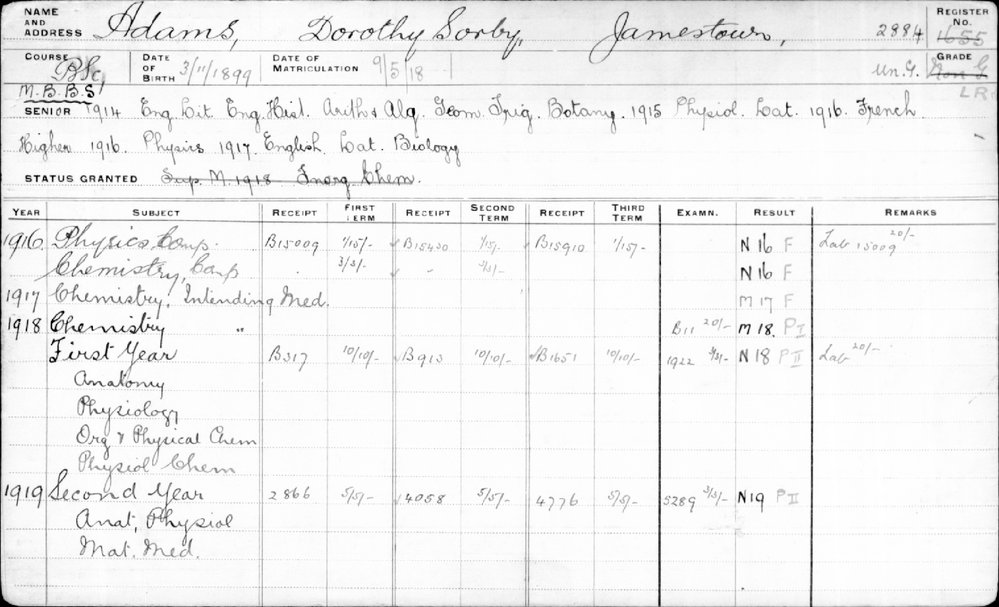 NAME AND ADDRESS Adams, Dorothy Sorby, Jamestown, 2884 REGISTER No. 1655
COURSE BSc, DATE OF BIRTH 3/11/1899 DATE OF MATRICULATION 9/5/18 Un. G. GRADE Non G
M.B.B.S LR
SENIOR 1914 Eng Lit. Eng. Hist. Arith & Alg. Geom. Trig. Botany. 1915 Physiol. Lat. 1916. French
Higher 1916. Physics 1917. English. Lat. Biology
STATUS GRANTED Sup. M. 1918. Inorg. Chem.
YEAR SUBJECT RECEIPT FIRST TERM RECEIPT SECOND TERM RECEIPT THIRD TERM EXAMN. RESULT REMARKS
1916 Physics, Comp. B15009 1/15/- B15450 1/15/- B15910 1/15/- N 16 F Lab 15009 20/-
Chemistry, Comp 3/3/- " 3/3/- N 16 F
1917 Chemistry, Intending Med. M 17 F
1918 Chemistry " B11 20/- M 18. P I
First Year B317 10/10/- B913 10/10/- B1651 10/10/- 1922 3/3/- N 18 P II Lab 20/-
Anatomy
Physiology
Org & Physical Chem
Physiol Chem
1919 Second Year 2866 5/5/- 4058 5/5/- 4776 5/5/- 5289 3/3/- N19 P II
Anat, Physiol
Mat. Med.